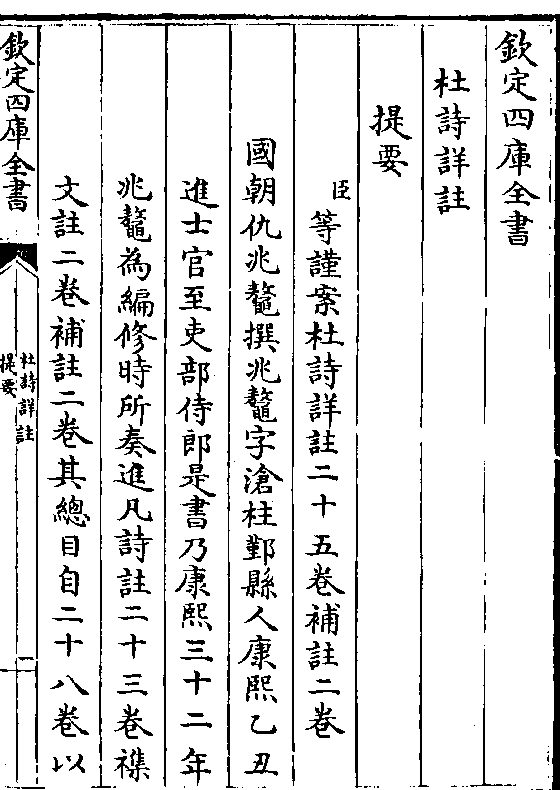 欽定四庫全書
杜詩詳註
提要
臣等謹案杜詩詳註二十五卷補註二卷
國朝仇兆鰲撰兆鰲字滄柱鄞縣人康熙乙丑
進士官至吏部侍郎是書乃康熙三十二年
兆鰲為編修時所奏進凡詩註二十三卷襍
文註二卷補註二卷其總目自二十八卷以
欽定四庫全書
杜詩詳註
提要
一